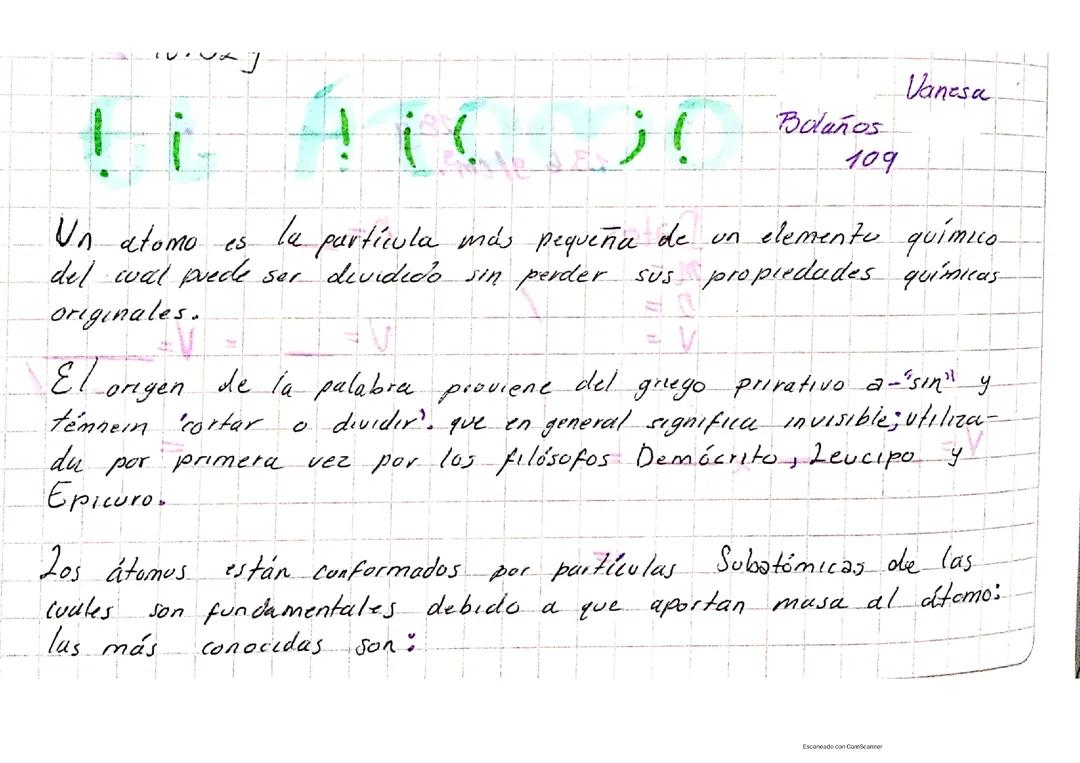 El Átomo
Vanesa
Bolaños
109
Un atomo es la partícula más pequeña de un elemento químico
del cual puede ser dividido sin perder sus propiedades químicas
originales.
El origen de la palabra proviene del griego privativo a-"sin" y
témnein 'cortar o dividir'. que en general significa invisible; utiliza-
da por primera vez por los filósofos Demócrito, Leucipo y
Epicuro.
Los átomos están conformados por partículas Subatómicas de las
cuales son fundamentales debido a que aportan masa al átomo;
las más conocidas son:
Escaneado con CamScanner